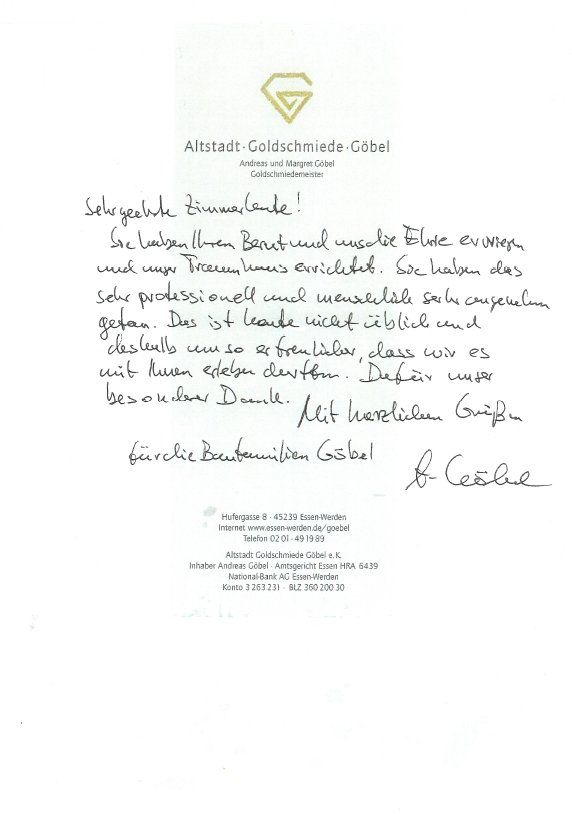 Altstadt · Goldschmiede · Göbel
Andreas und Margret Göbel
Goldschmiedemeister
Sehr geehrte Zimmerleute!
Sie haben Ihrem Beruf und uns die Ehre erwiesen
und unser Traumhaus errichtet. Sie haben das
sehr professionell und menschlich sehr angenehm
getan. Das ist heute nicht üblich und
deshalb um so erfreulicher, dass wir es
mit Ihnen erleben durften. Dafür unser
besonderer Dank.
Mit herzlichen Grüßen
für die Baufamilien Göbel
A. Göbel
Hufergasse 8 · 45239 Essen-Werden
Internet www.essen-werden.de/goebel
Telefon 02 01 · 49 19 89
Altstadt Goldschmiede Göbel e.K.
Inhaber Andreas Göbel · Amtsgericht Essen HRA 6439
National-Bank AG Essen-Werden
Konto 3 263 231 · BLZ 360 200 30